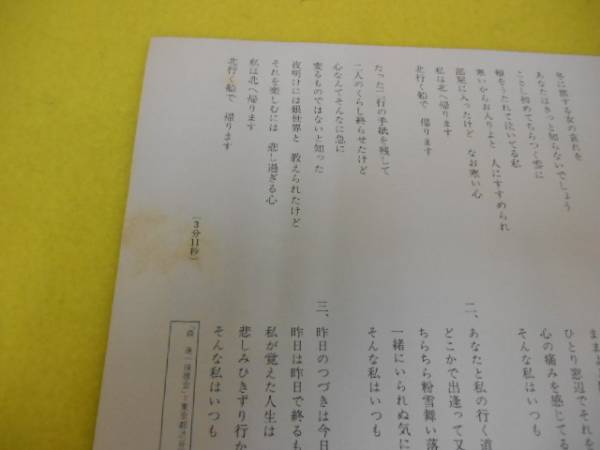 冬に旅する女の哀れを
あなたはきっと知らないでしょう
ことし初めてちらつく雪に
頬をうたれて泣いてる私
寒いからお入りよと 人にすすめられ
部屋に入ったけど なお寒い心
私は北へ帰ります
北行く船で 帰ります
たった二行の手紙を残して
二人のくらし終らせたけど
心なんてそんなに急に
変るものではないと知った
夜明けには銀世界と 教えられたけど
それを楽しむには 悲し過ぎる心
私は北へ帰ります
北行く船で 帰ります
(3分11秒)
ひとり窓辺でそれを
心の痛みを感じてる
そんな私はいつも
二、あなたと私の行く道
どこかで出逢って又
ちらちら粉雪舞い落
一緒にいられぬ気に
そんな私はいつも
三、昨日のつづきは今日
昨日は昨日で終るも
私が覚えた人生は
悲しみひきずり行か
そんな私はいつも